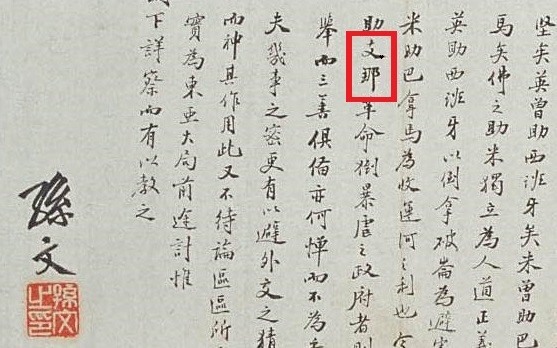 堅矣英曾助西班牙矣米曾助巴
馬矣佛之助米獨立為人道正義
英助西班牙以倒拿破崙為避害
米助巴拿馬為收運河之利也今
助支那革命倒暴虐之政府者則
舉而三善俱備亦何憚而不為
夫幾事之密更有以避外交之猜
而神其作用此又不待論區區所
實為東亞大局前途計惟
下詳察而有以教之
孫文
孫文之印